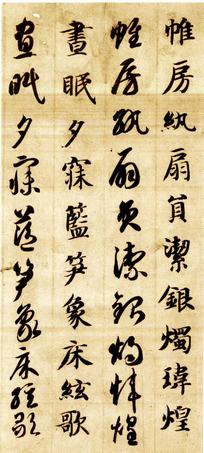 帷房紈扇員潔銀燭瑋煌
帷房紈扇員潔銀燭煒煌
晝眠夕寐藍笋象床絃歌
晝眠夕寐藍笋象床弦歌